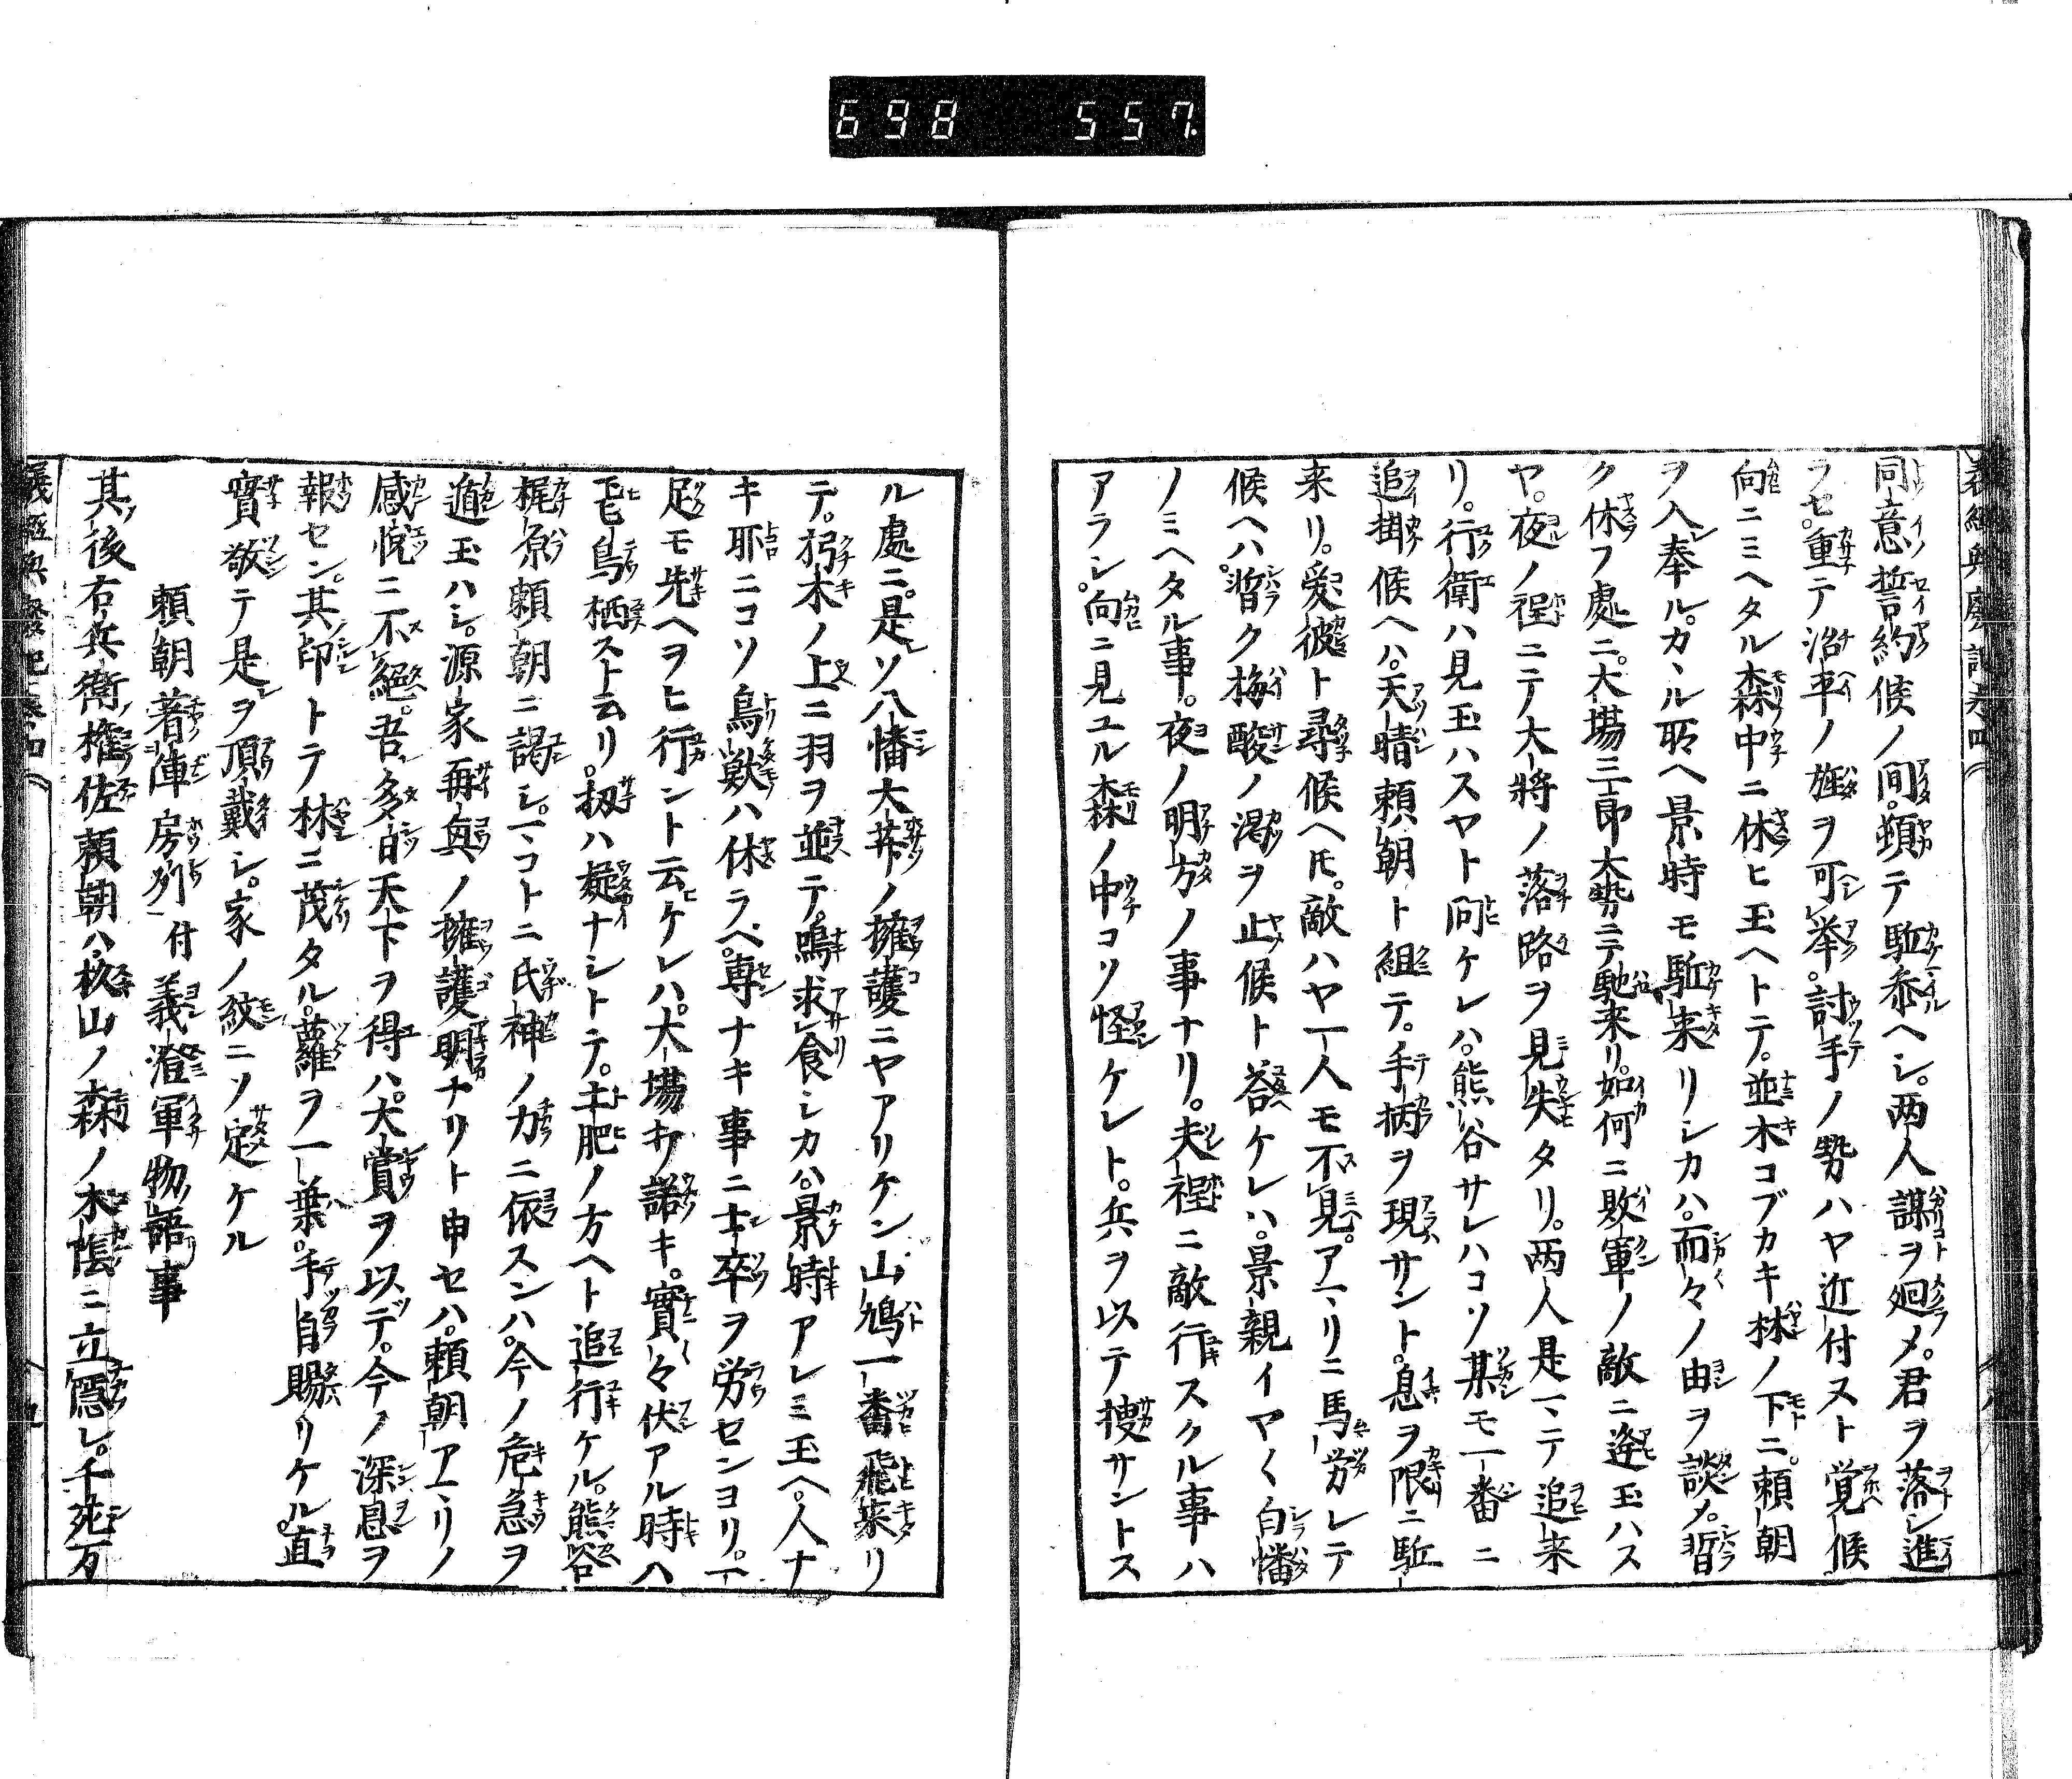 698 557.
同意誓約候ノ間。頻テ駈参ヘシ。両人謀ヲ廻メ。君ヲ落シ進
ラセ。重テ治平ノ旌ヲ可挙。討手ノ勢ハヤ近付ヌト覚候
向ニミヘタル森中ニ休ヒ玉ヘトテ。並木コブカキ林ノ下ニ。頼朝
ヲ入奉ル。カヽル所ヘ景時モ駈来リシカハ。而々ノ由ヲ談メ。暫
ク休フ處ニ。大場三郎大勢ニテ馳来リ。如何ニ敗軍ノ敵ニ逢玉ハス
ヤ。夜ノ程ニテ大将ノ落路ヲ見失タリ。両人是ニテ追来
リ。行衛ハ見玉ハスヤト問ケレハ。熊谷サレハコソ某モ一番ニ
追掛候ヘハ。天晴頼朝ト組テ。手柄ヲ現サント。息ヲ限ニ駈
来リ。爰彼ト尋候ヘ𪜈。敵ハヤ一人モ不見。アマリニ馬労レテ
候ヘハ。暫ク梅酸ノ渇ヲ止候ト答ケレハ。景親イヤ〱白幡
ノミヘタル事。夜ノ明方ノ事ナリ。夫程ニ敵行スクル事ハ
アラシ。向ニ見ユル森ノ中コソ怪ケレト。兵ヲ以テ捜サントス
ル處ニ。是ソ八幡大菩薩ノ擁護ニヤアリケン山鳩一番飛来リ
テ。朽木ノ上ニ羽ヲ並テ。鳴求食シカハ。景時アレミ玉ヘ。人ナ
キ所ニコソ鳥獣ハ休ラヘ。専ナキ事ニ士卒ヲ労センヨリ。一
足モ先ヘヲヒ行ント云ケレハ。大場打諾キ。實々伏アル時ハ
飛鳥栖スト云リ。扨ハ疑ナシトテ。土肥ノ方ヘト追行ケル。熊谷
梶原頼朝ニ謁シ。マコトニ氏神ノ力ニ依スンハ。今ノ危急ヲ
遁玉ハシ。源家再興ノ擁護明ナリト申セハ。頼朝アマリノ
感悦ニ不絶。吾多日天下ヲ得ハ。大賞ヲ以テ。今ノ深恩ヲ
報セン。其印トテ林ニ茂タル。蘿ヲ一葉。手自賜リケル。直
實敬テ是ヲ頂戴シ。家ノ紋ニソ定ケル
頼朝著陣房州付義澄軍物語事
其後右兵衛権佐頼朝ハ。椙山ノ森ノ木陰ニ立隠レ。千死万